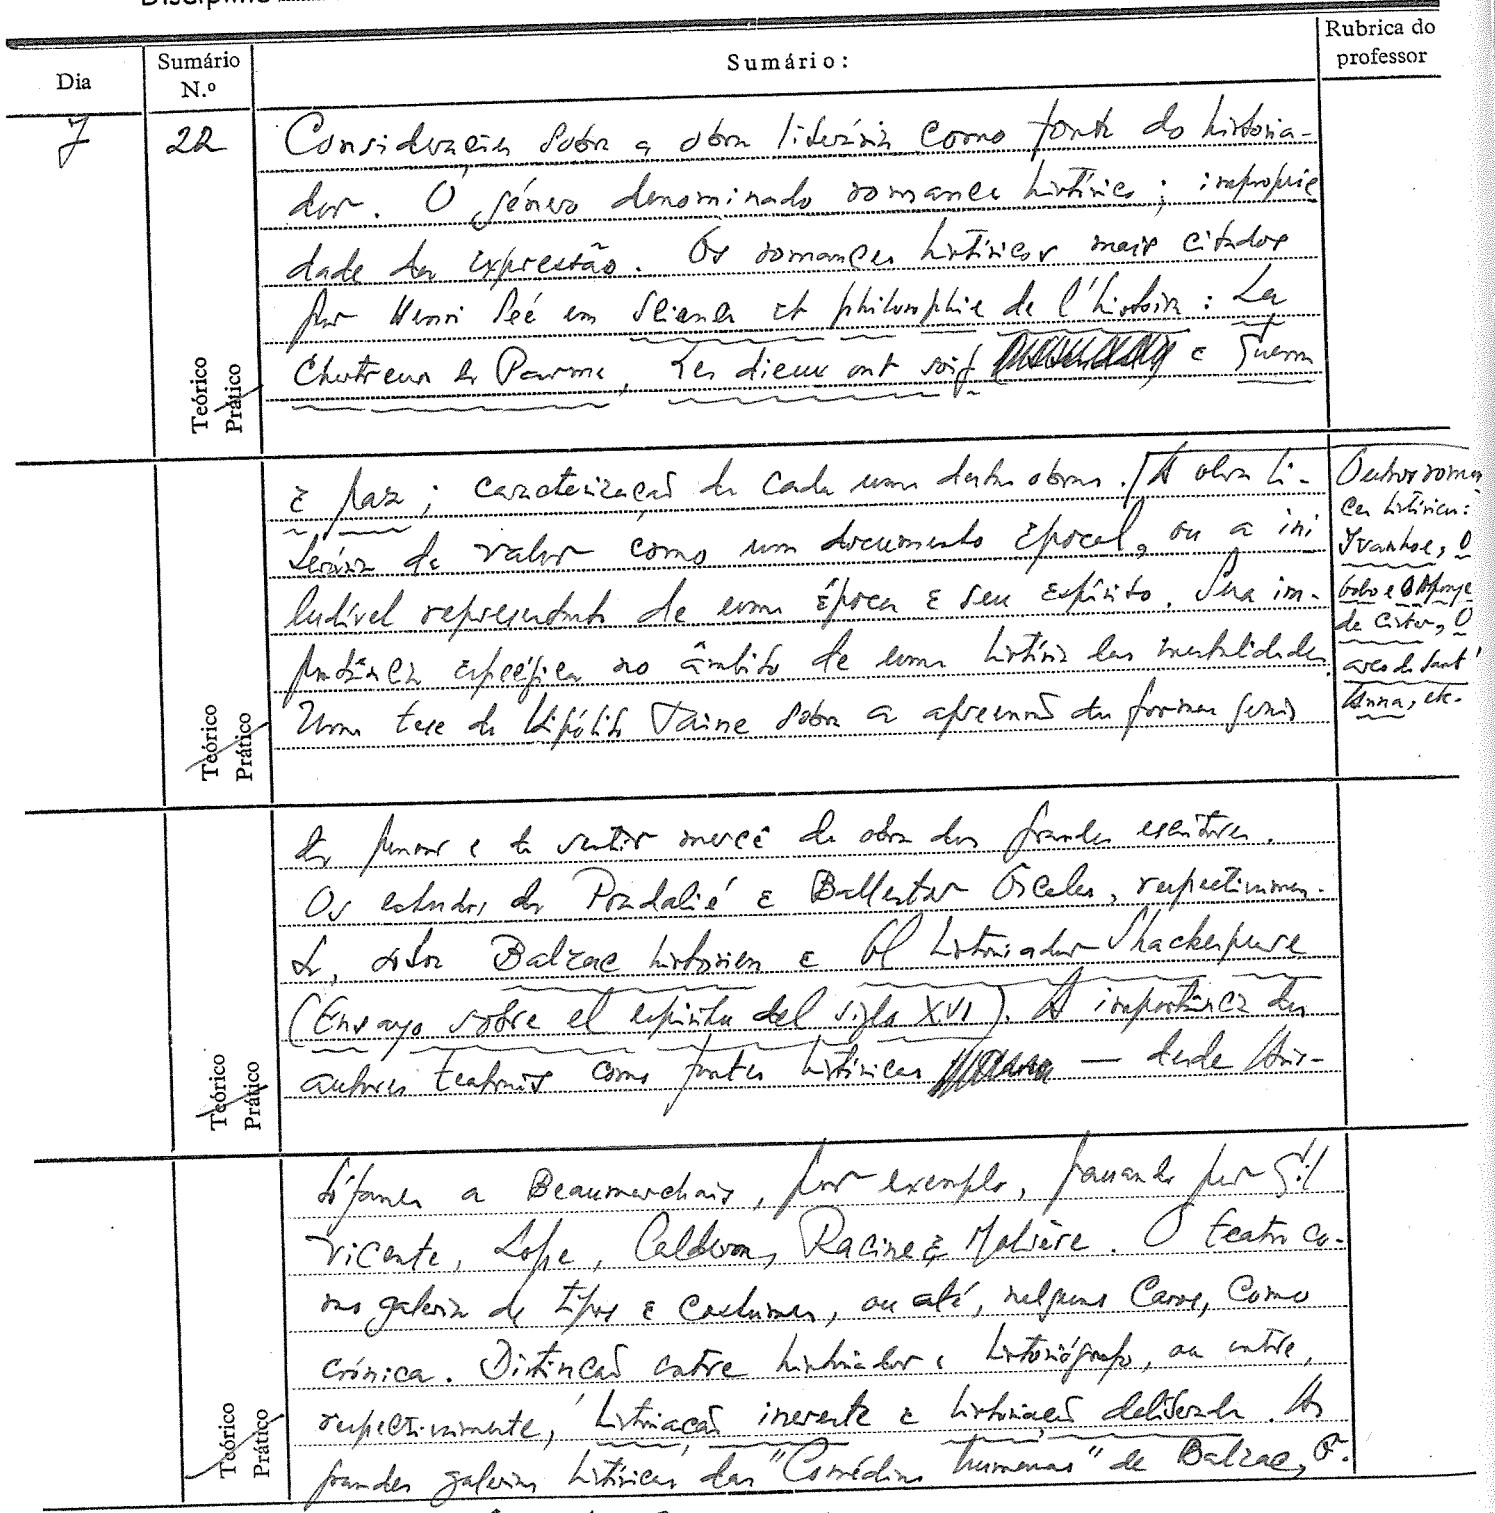 Disciplina
Dia
Sumário N.º
Sumário:
Rubrica do professor
7
22
Considerações sobre a obra literária como fonte do historia-
dor. O género denominado romance histórico; improprie
dade da expressão. Os romances históricos mais citados
por Henri Sée em Science et philosophie de l'histoire: La
Chartreuse de Parme, Les dieux ont soif e Guerra
Teórico
Prático
e paz; caracterização de cada uma destas obras. A obra li-
terária de valor como um documento epocal, ou a ini
ludível representante de uma época e seu espírito. Sua im-
portância específica no âmbito de uma história das mentalidades.
Uma tese de Hipólito Taine sobre a apreensão das formas gerais
Teórico
Prático
Outros roman
ces históricos:
Ivanhoe, O
bobo e O Monge
de Cister, O
arco de Sant'
Anna, etc.
de pensar e de sentir mercê da obra dos grandes escritores.
Os estudos de e Ballester respectivamen-
te, sobre Balzac historien e El historiador Shackespeare
(Ensayo sobre el espíritu del siglo XVI). A importância dos
autores teatrais como fontes históricas — desde Aris-
Teórico
Prático
tófanes a Beaumarchais, por exemplo, passando por Gil
Vicente, Lope, Calderon, Racine e Molière. O teatro co-
mo galeria de tipos e costumes, ou até, nalguns casos, como
crónica. Distinção entre historiador e historiógrafo, ou entre,
respectivamente, historiação inerente e historiação deliberada. As
grandes galerias históricas das "Comédias humanas" de Balzac,
Teórico
Prático